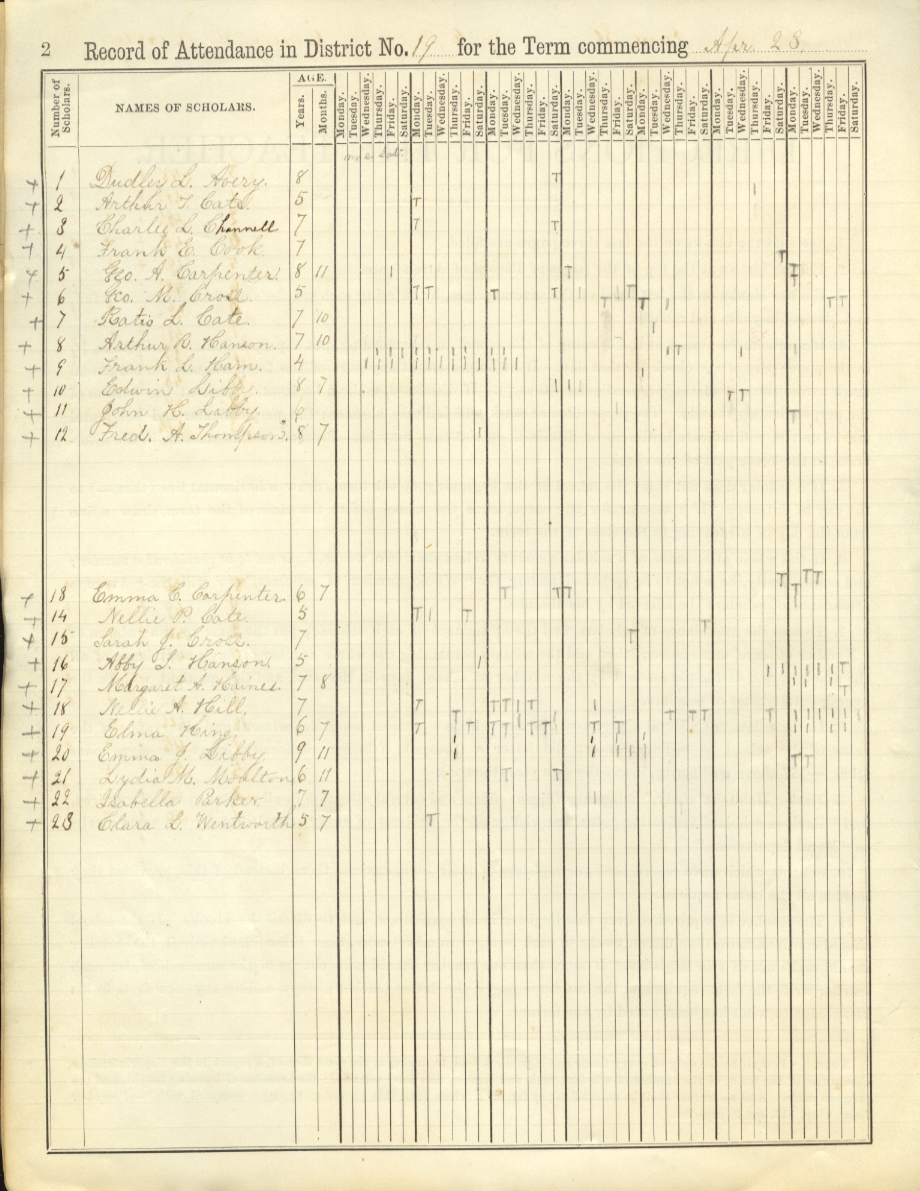 2 Record of Attendance in District No. 19 for the Term commencing Apr 28.
Number of Scholars. NAMES OF SCHOLARS. AGE. Years. Months. Monday. Tuesday. Wednesday. Thursday. Friday. Saturday. Monday. Tuesday. Wednesday. Thursday. Friday. Saturday. Monday. Tuesday. Wednesday. Thursday. Friday. Saturday. Monday. Tuesday. Wednesday. Thursday. Friday. Saturday. Monday. Tuesday. Wednesday. Thursday. Friday. Saturday. Monday. Tuesday. Wednesday. Thursday. Friday. Saturday. Monday. Tuesday. Wednesday. Thursday. Friday. Saturday.
+ 1 Dudley L. Avery. 8 T
+ 2 Arthur T. Cate. 5 T
+ 3 Charley L. Channell 7 T T
+ 4 Frank E. Cook. 7 T
+ 5 Geo. A. Carpenter. 8 11 T T
+ 6 Geo. M. Cross. 5 T T T T T T T T T
+ 7 Katie L. Cate. 7 10
+ 8 Arthur B. Hanson. 7 10 T
+ 9 Frank L. Ham. 4
+ 10 Edwin Libby. 8 7 T T T
+ 11 John H. Libby. 6 T
+ 12 Fred. A. Thompson. 8 7
+ 13 Emma C. Carpenter. 6 7 T T T T T T T
+ 14 Nellie P. Cate. 5 T T T
+ 15 Sarah J. Cross. 7 T
+ 16 Abby S. Hanson. 5 T
+ 17 Margaret A. Haines. 7 8 T
+ 18 Nellie A. Hill. 7 T T T T T T T T T
+ 19 Elma King. 6 7 T T T T T T T T
+ 20 Emma J. Libby. 9 11 T T
+ 21 Lydia M. Moulton 6 11 T T
+ 22 Isabella Parker. 7 7
+ 23 Clara L. Wentworth 5 7 T